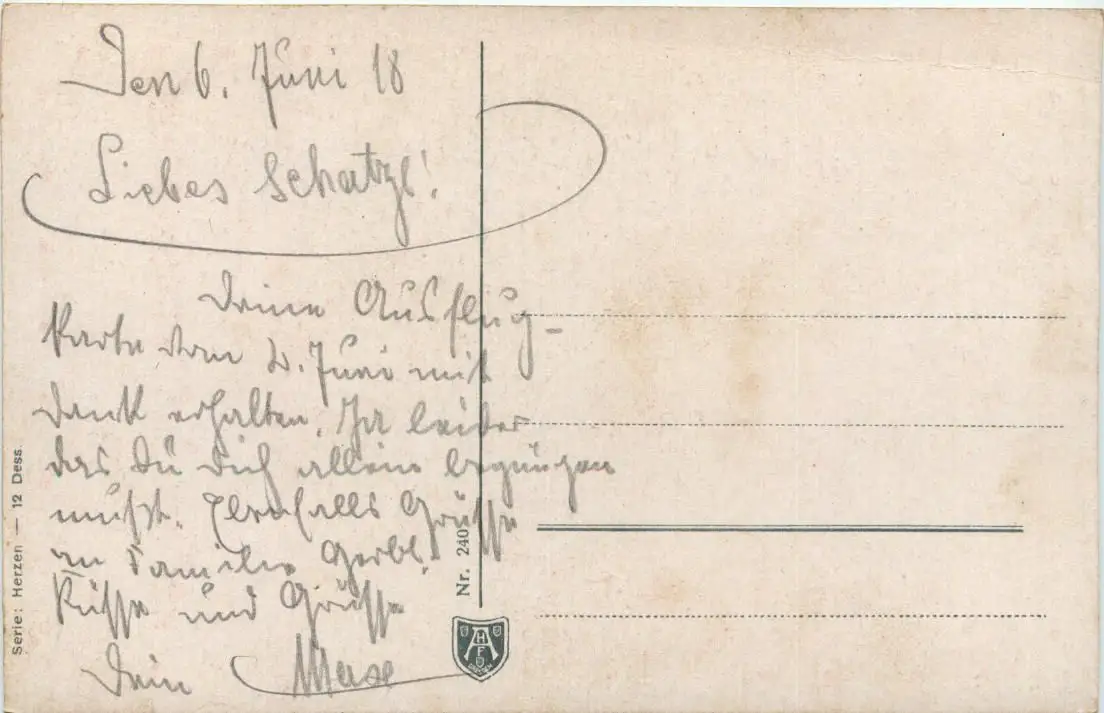 Den 6. Juni 18
Liebes Schatzl!
Deine Ausflug-
karte vom 2. Juni mit
Dank erhalten. Ja leider
das Du Dich allein begnügen
mußt. Ebenfalls Grüsse
an Familie Gerbl.
Küsse und Grüsse
Dein Maxe
Serie: Herzen — 12 Dess.
Nr. 240
A H F
DRESDEN